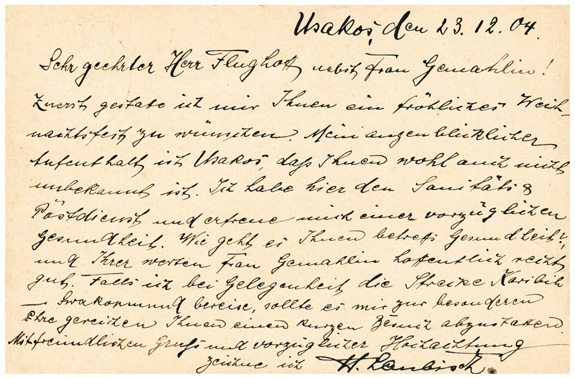 Usakos, den 23.12.04.
Sehr geehrter Herr Flughoff nebst Frau Gemahlin!
Zuerst gestate ich mir Ihnen ein fröhliches Weih-
nachtsfest zu wünschen. Mein augenblicklicher
Aufenthalt ist Usakos dass Ihnen wohl auch nicht
unbekannt ist. Ich habe hier den Sanitäts &
Postdienst und erfreue mich einer vorzüglichen
Gesundheit. Wie geht es Ihnen betreffs Gesundheit?,
und Ihrer werten Frau Gemahlin hoffentlich recht
gut, Falls ich bei Gelegenheit die Strecke Karibib
– Swakopmund bereise, sollte es mir zur besonderen
Ehre gereichen Ihnen einen kurzen Besuch abzustatten.
Mit freundlichen Gruss und vorzüglicher Hochachtung
zeichne ich H.